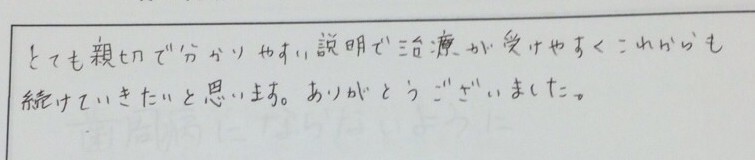 とても親切で分かりやすい説明で治療が受けやすくこれからも
続けていきたいと思います。ありがとうございました。